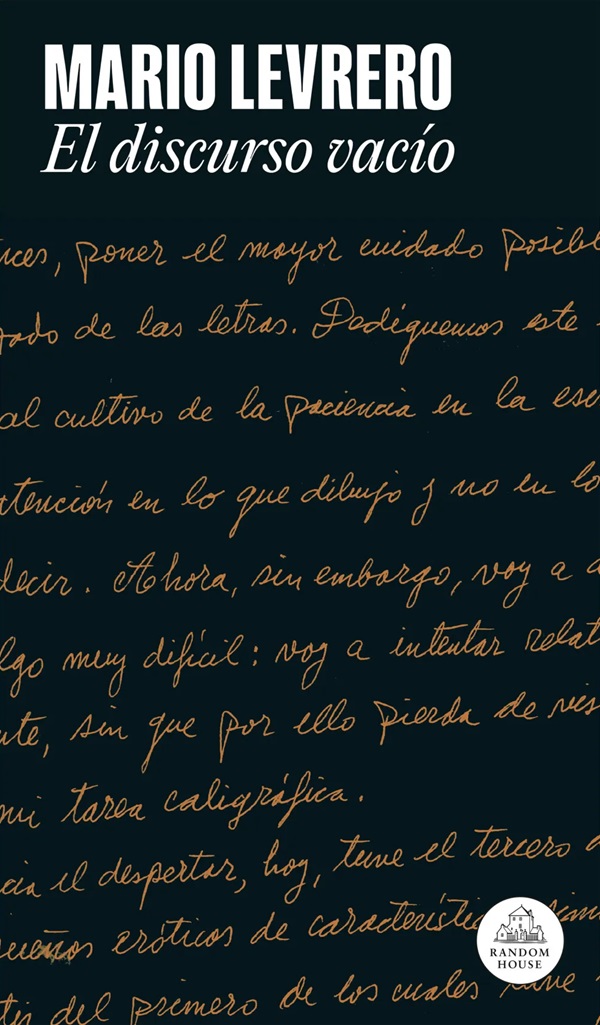 MARIO LEVRERO
El discurso vacío
nces, poner el mayor cuidado posibl
zado de las letras. Dediquemos este
al cultivo de la paciencia en la esc
atención en lo que dibujo y no en lo
decir. Ahora, sin embargo, voy a a
lgo muy difícil: voy a intentar relat
nte, sin que por ello pierda de vis
mi tarea caligráfica.
cia el despertar, hoy, tuve el tercero d
sueños eróticos de característic sim
tis del primero de los cuales tuve
RANDOM
HOUSE